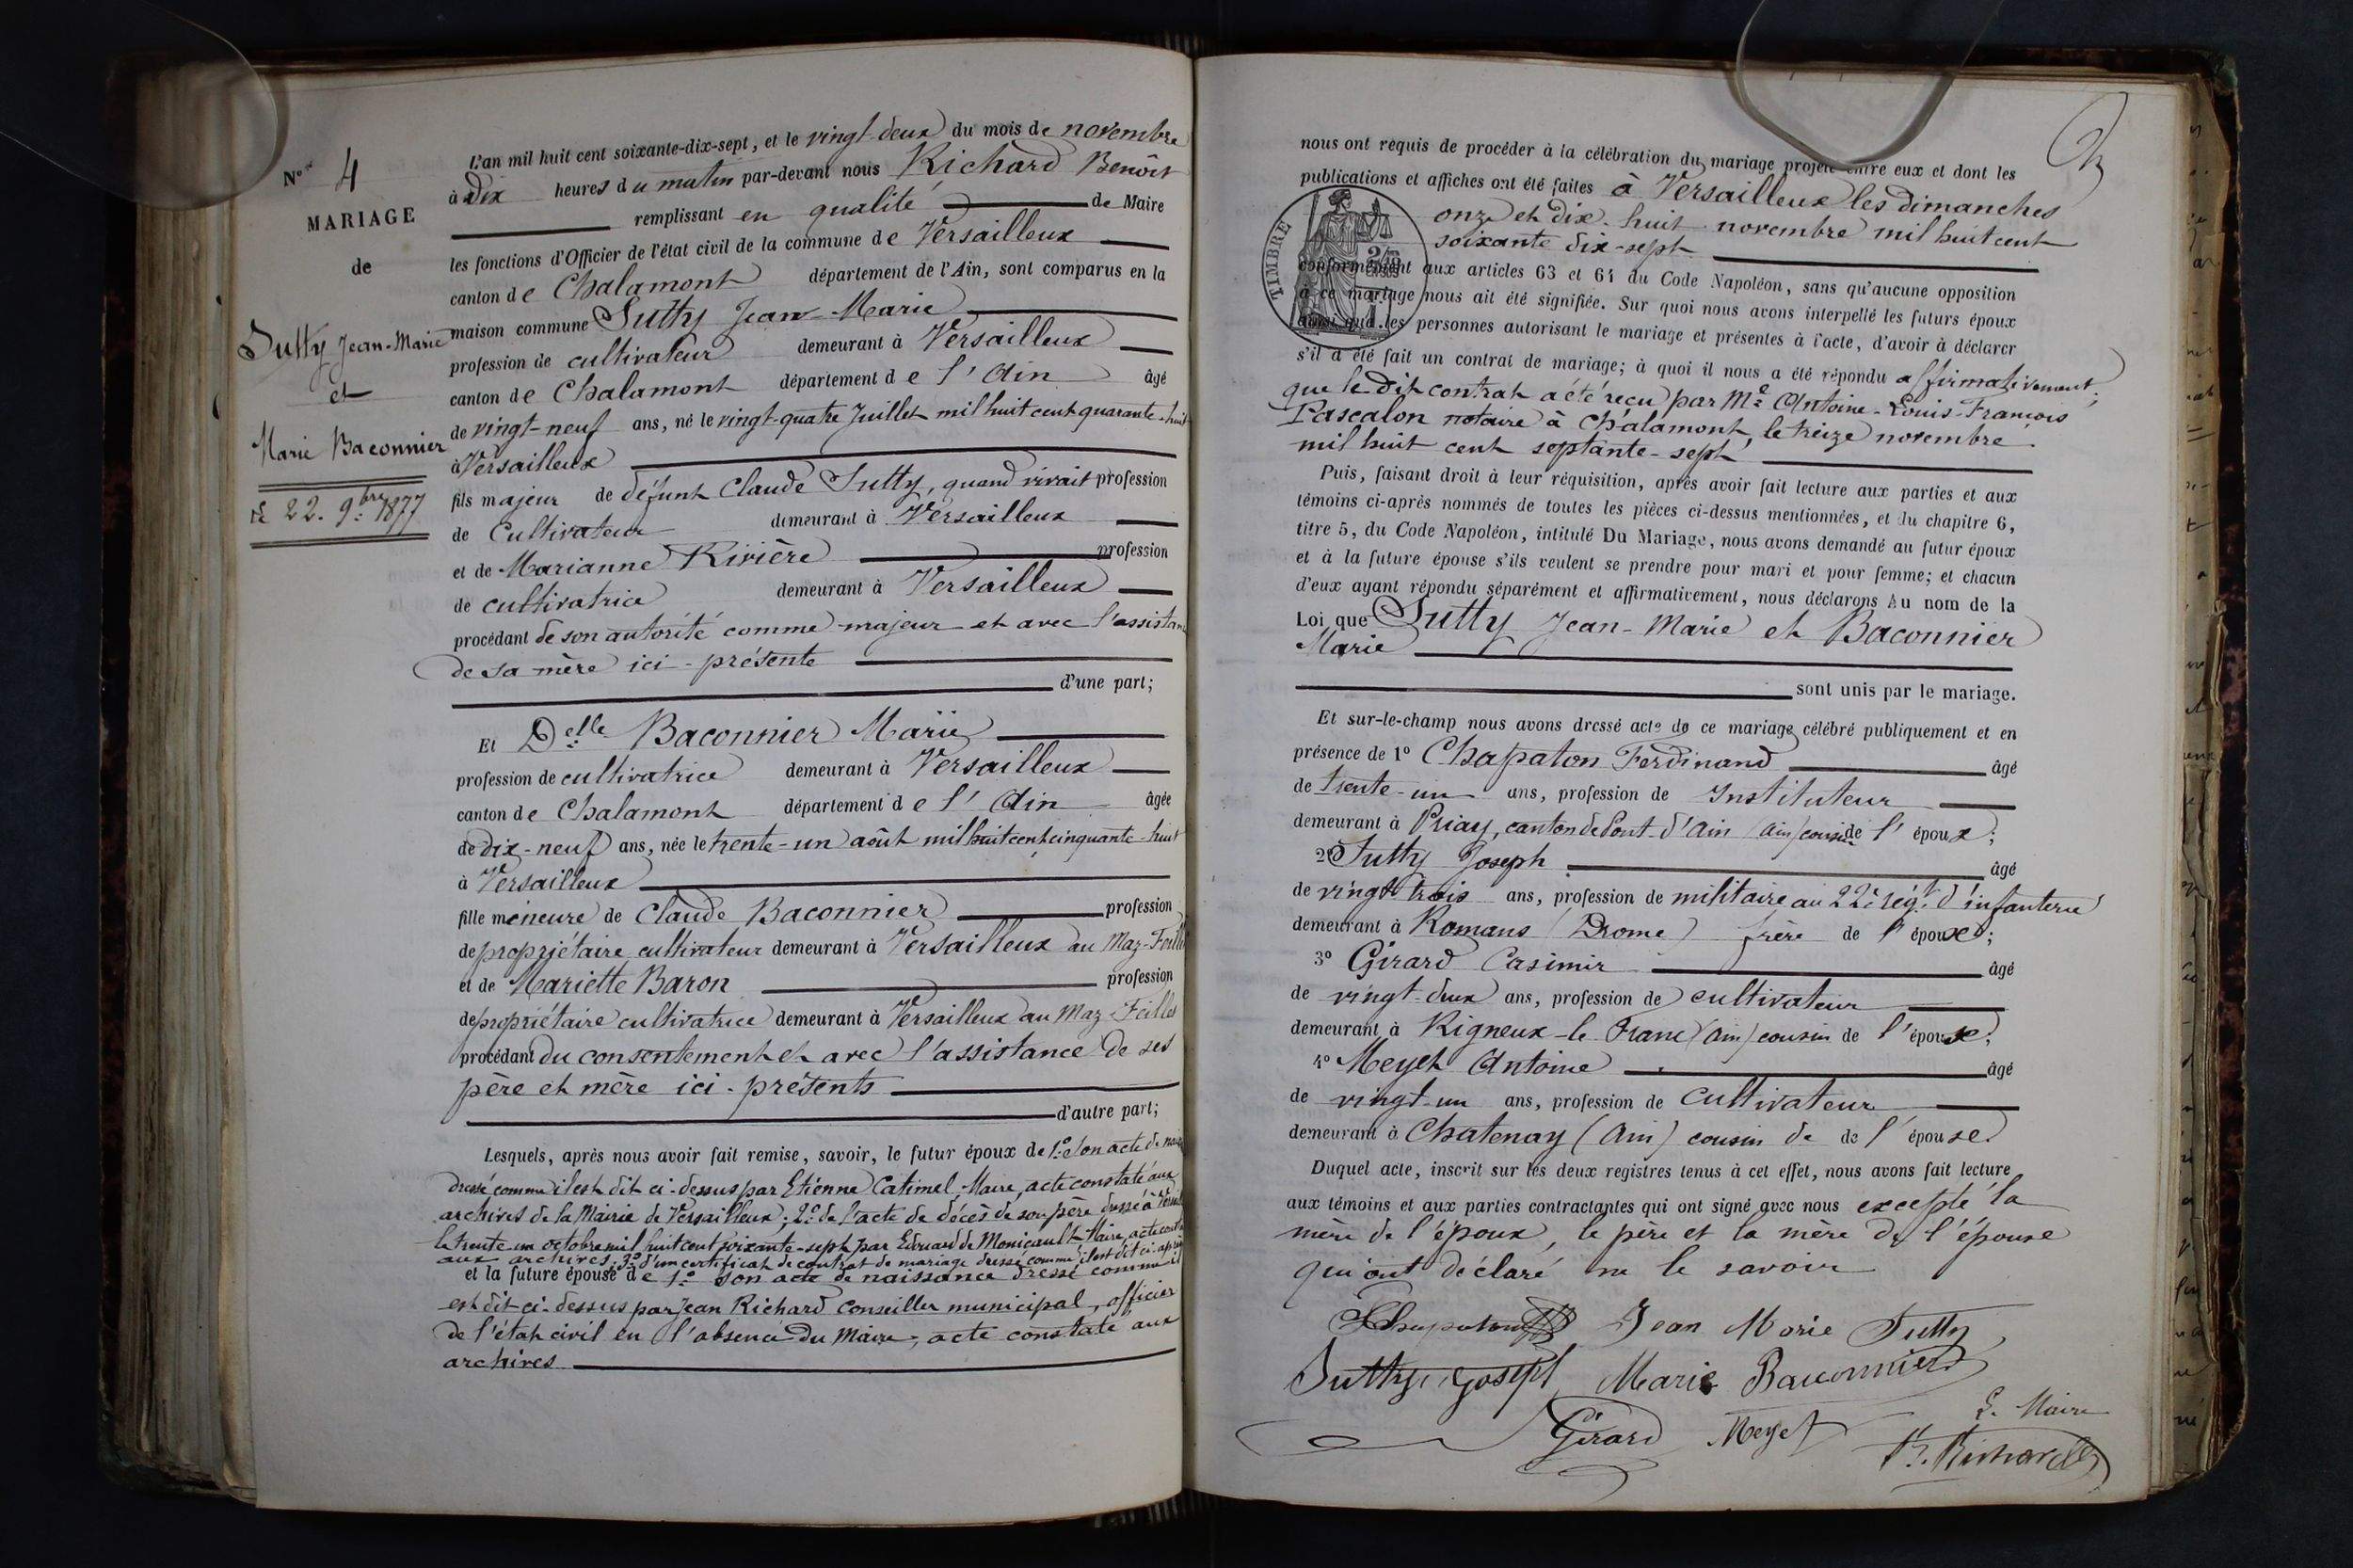 N° 4
MARIAGE
de
Sutty Jean-Marie
et
Marie Baconnier
Le 22. 9bre 1877
L'an mil huit cent soixante-dix-sept, et le vingt-deux du mois de novembre
à Dix heures du matin par-devant nous Richard Benoît
remplissant en qualité de Maire
les fonctions d'Officier de l'état civil de la commune de Versailleux
canton de Chalamont département de l'Ain, sont comparus en la
maison commune Sutty Jean-Marie
profession de cultivateur demeurant à Versailleux
canton de Chalamont département de l'Ain âgé
de vingt-neuf ans, né le vingt-quatre Juillet mil huit cent quarante-huit
à Versailleux
fils majeur de défunt Claude Sutty, quand vivait profession
de Cultivateur demeurant à Versailleux
et de Marianne Rivière profession
de cultivatrice demeurant à Versailleux
procédant de son autorité comme majeur et avec l'assistance
de sa mère ici-présente
d'une part;
Et Delle Baconnier Marie
profession de cultivatrice demeurant à Versailleux
canton de Chalamont département de l'Ain âgée
de dix-neuf ans, née le trente-un août mil huit cent cinquante-huit
à Versailleux
fille mineure de Claude Baconnier profession
de propriétaire cultivateur demeurant à Versailleux au Maz-Feilles
et de Mariette Baron profession
de propriétaire cultivatrice demeurant à Versailleux au Maz-Feilles
procédant du consentement et avec l'assistance de ses
père et mère ici-présents
d'autre part;
Lesquels, après nous avoir fait remise, savoir, le futur époux de 1° son acte de
dressé comme il est dit ci-dessus par Etienne Catimel, Maire, acte constaté aux
archives de la Mairie de Versailleux; 2° de l'acte de décès de son père dressé à
le trente-un octobre mil huit cent soixante-sept par Edouard de Monicault Maire, acte
aux archives; 3° d'un certificat de contrat de mariage dressé comme il est dit ci-après
et la future épouse de 1° son acte de naissance dressé comme il
est dit ci-dessus par Jean Richard conseiller municipal, officier
de l'état civil en l'absence du Maire, acte constaté aux
archives
nous ont requis de procéder à la célébration du mariage projeté entre eux et dont les
publications et affiches ont été faites à Versailleux les dimanches
onze et dix-huit novembre mil huit cent
soixante dix-sept
TIMBRE
conformément aux articles 63 et 64 du Code Napoléon, sans qu'aucune opposition
à ce mariage nous ait été signifiée. Sur quoi nous avons interpellé les futurs époux
ainsi que les personnes autorisant le mariage et présentes à l'acte, d'avoir à déclarer
s'il a été fait un contrat de mariage; à quoi il nous a été répondu affirmativement;
que le dit contrat a été reçu par Me Antoine-Louis-François
Pascalon notaire à Chalamont, le treize novembre
mil huit cent septante-sept
Puis, faisant droit à leur réquisition, après avoir fait lecture aux parties et aux
témoins ci-après nommés de toutes les pièces ci-dessus mentionnées, et du chapitre 6,
titre 5, du Code Napoléon, intitulé Du Mariage, nous avons demandé au futur époux
et à la future épouse s'ils veulent se prendre pour mari et pour femme; et chacun
d'eux ayant répondu séparément et affirmativement, nous déclarons Au nom de la
Loi que Sutty Jean-Marie et Baconnier
Marie
sont unis par le mariage.
Et sur-le-champ nous avons dressé acte de ce mariage célébré publiquement et en
présence de 1° Chapaton Ferdinand âgé
de trente-un ans, profession de Instituteur
demeurant à Priay, canton de Pont-d'Ain (Ain) cousin de l'époux;
2° Sutty Joseph âgé
de vingt-trois ans, profession de militaire au 22e régt d'infanterie
demeurant à Romans (Drome) frère de l'époux;
3° Girard Casimir âgé
de vingt-deux ans, profession de cultivateur
demeurant à Rigneux-le-Franc (Ain) cousin de l'épouse;
4° Meyet Antoine âgé
de vingt-un ans, profession de cultivateur
demeurant à Chatenay (Ain) cousin de de l'épouse
Duquel acte, inscrit sur les deux registres tenus à cet effet, nous avons fait lecture
aux témoins et aux parties contractantes qui ont signé avec nous excepté la
mère de l'époux, le père et la mère de l'épouse
qui ont déclaré ne le savoir
FChapaton Jean Marie Sutty
Sutty Joseph Marie Baconnier
Girard Meyet L. Maire
B. Richard